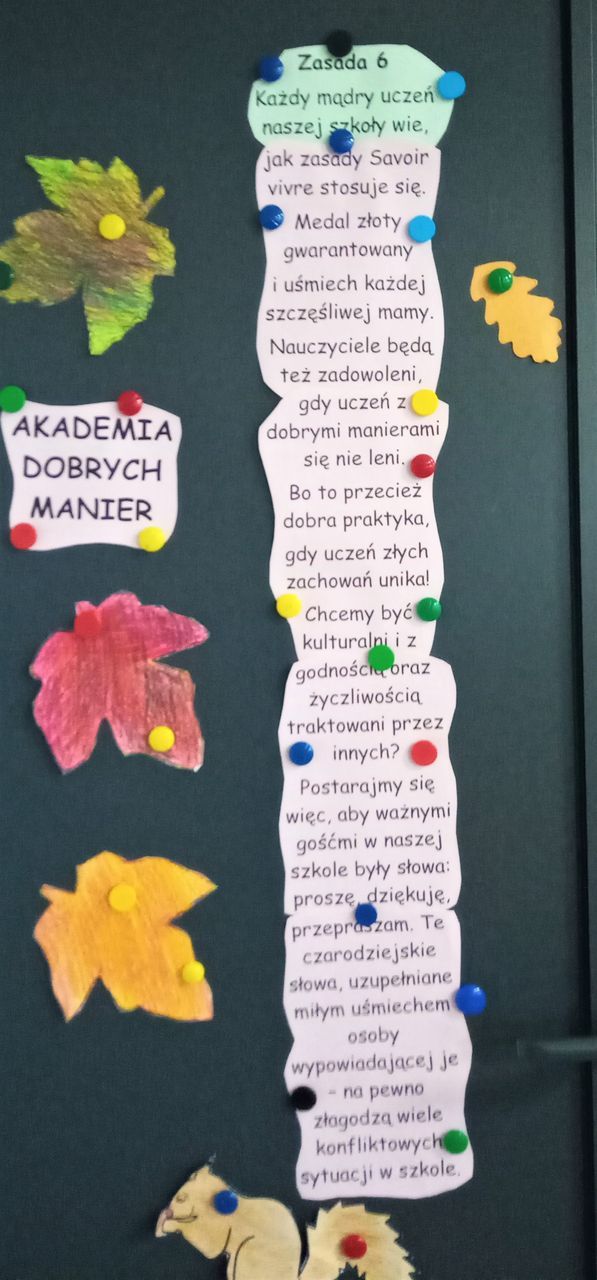 Zasada 6
Każdy mądry uczeń
naszej szkoły wie,
jak zasady Savoir
vivre stosuje się.
Medal złoty
gwarantowany
i uśmiech każdej
szczęśliwej mamy.
Nauczyciele będą
też zadowoleni,
gdy uczeń z
dobrymi manierami
się nie leni.
Bo to przecież
dobra praktyka,
gdy uczeń złych
zachowań unika!
Chcemy być
kulturalni i z
godnością oraz
życzliwością
traktowani przez
innych?
Postarajmy się
więc, aby ważnymi
gośćmi w naszej
szkole były słowa:
proszę, dziękuję,
przepraszam. Te
czarodziejskie
słowa, uzupełniane
miłym uśmiechem
osoby
wypowiadającej je
- na pewno
złagodzą wiele
konfliktowych
sytuacji w szkole.
AKADEMIA
DOBRYCH
MANIER